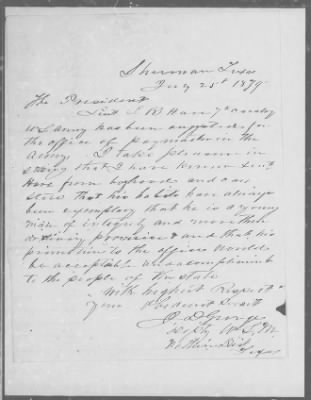 Sherman Texas
July 25th 1879
The President
Lieut L R Hare 7th cavalry
U S Army has been suggested for
the office of paymaster in the
Army. I take pleasure in
saying that I have known Lieut
Hare from boyhood and can
state that his habits have always
been exemplary that he is a young
man of integrity and more than
ordinary promise & and that his
promotion to the office would
be acceptable and a compliment
to the people of the state
With highest Respect
Your obedient Servt
George
Depty U. S. M.
Dist
Texas